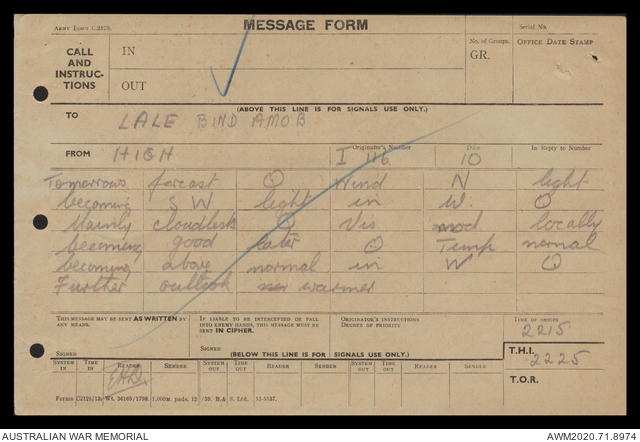 ARMY FORM C.2128.
MESSAGE FORM
Serial No.
CALL AND INSTRUC-TIONS
IN
OUT
No. of Groups.
GR.
OFFICE DATE STAMP
(ABOVE THIS LINE IS FOR SIGNALS USE ONLY.)
TO LALE BIND AMOB
FROM HIGH
Originator's Number
I 116
Date
10
In Reply to Number
Tomorrows forcast O Wind N light
becoming SW light in W. O
Mainly cloudless O Vis mod locally
becoming good later O Temp normal
becoming above normal in W O
Further outlook warmer
THIS MESSAGE MAY BE SENT AS WRITTEN BY ANY MEANS.
IF LIABLE TO BE INTERCEPTED OR FALL INTO ENEMY HANDS, THIS MESSAGE MUST BE SENT IN CIPHER.
ORIGINATOR'S INSTRUCTIONS
DEGREE OF PRIORITY
TIME OF ORIGIN
2215
SIGNED
SIGNED
(BELOW THIS LINE IS FOR SIGNALS USE ONLY.)
T.H.I. 2225
SYSTEM IN
TIME IN
READER
SENDER
SYSTEM OUT
TIME OUT
READER
SENDER
SYSTEM OUT
TIME OUT
READER
SENDER
T.O.R.
AUSTRALIAN WAR MEMORIAL
AWM2020.71.8974